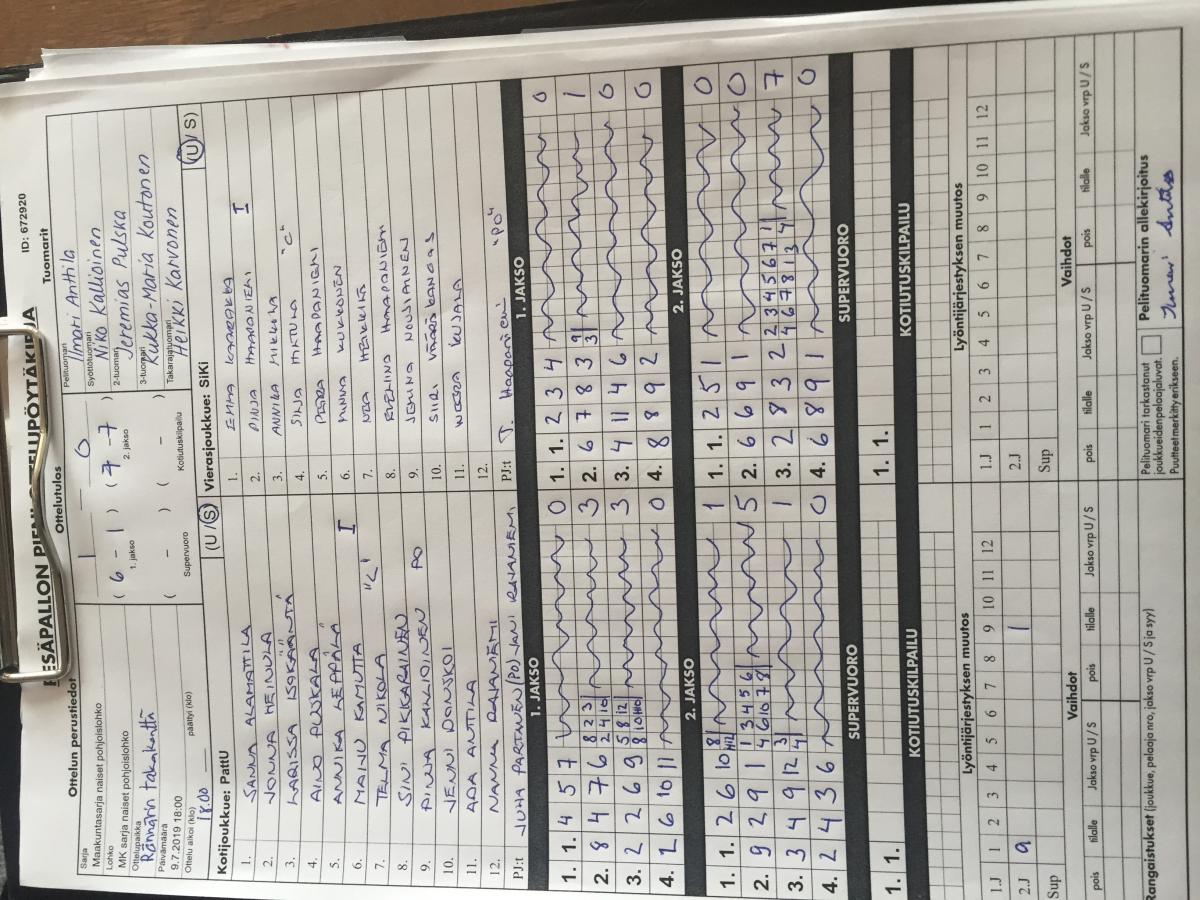 PESÄPALLON PIENOISOTTELUPÖYTÄKIRJA ID: 672920
Ottelun perustiedot
Ottelutulos
Tuomarit
Sarja
Maakuntasarja naiset pohjoislohko
Lohko
MK sarja naiset pohjoislohko
Ottelupaikka
Rännärin takakenttä
Päivämäärä
9.7.2019 18:00
Ottelu alkoi (klo) päättyi (klo)
18.00
1 0
( 6 - 1 ) ( 7 - 7 )
1. jakso 2. jakso
( - ) ( - )
Supervuoro Kotiutuskilpailu
Pelituomari
Ilmari Anttila
Syöttötuomari
Niko Kallioinen
2-tuomari
Jeremias Pulska
3-tuomari
Kukka-Maria Koutonen
Takarajatuomari
Heikki Karvonen
Kotijoukkue: PattU (U / S)
1. SANNA ALAMATTILA
2. JONNA HEINULA
3. KARISSA ISOKÄÄNTÄ
4. AINO PUSKALA
5. ANNIKA LEPPÄLÄ
6. MAINU KAMUTTA "C" I
7. TELMA NIKOLA
8. SINI PIKKARAINEN
9. PINJA KALLIOINEN PO
10. JENNI DONSKOI
11. ADA ANTTILA
12. NANNA RAJANIEMI
PJ:t JUHA PARTANEN (PO) JANI RAJANIEMI
Vierasjoukkue: SiKi (U / S)
1. EMMA KAARAKKA I
2. PINJA HAAPANIEMI
3. ANNIKA MIKKILÄ
4. SINJA HINTULA "C"
5. PETRA HAAPANIEMI
6. MINNA KUKKONEN
7. NEA HEIKKILÄ
8. EVELINA HAAPANIEMI
9. JEMINA NOUSIAINEN
10. SIIRI VÄÄRÄKANGAS
11. NOORA KUJALA
12.
PJ:t T. Haapaniemi "PO"
1. JAKSO
1. 1. 4 5 7 0
2. 8 4 7 6 8 2 3 3
2 4 10
3. 2 2 6 9 5 8 12 3
8 10 10
4. 2 6 10 11 0
1. JAKSO
1. 1. 2 3 4 0
2. 6 7 8 3 9 1
3
3. 4 11 4 6 0
4. 8 8 9 2 0
2. JAKSO
1. 1. 2 6 10 8 1
2. 9 2 9 1 1 3 4 5 6 5
4 6 10 7 8
3. 3 4 9 12 3 1
4
4. 2 4 3 6 0
2. JAKSO
1. 1. 2 5 1 0
2. 6 6 9 1 0
3. 2 8 3 2 2 3 4 5 6 7 1 7
4 6 7 8 1 3 4
4. 6 8 9 1 0
SUPERVUORO
1. 1.
SUPERVUORO
1. 1.
KOTIUTUSKILPAILU
KOTIUTUSKILPAILU
Lyöntijärjestyksen muutos
1.J 1 2 3 4 5 6 7 8 9 10 11 12
2.J 9 1
Sup
Lyöntijärjestyksen muutos
1.J 1 2 3 4 5 6 7 8 9 10 11 12
2.J
Sup
Vaihdot
pois tilalle Jakso vrp U / S pois tilalle Jakso vrp U / S
Vaihdot
pois tilalle Jakso vrp U / S pois tilalle Jakso vrp U / S
Rangaistukset (joukkue, pelaaja nro, jakso vrp U / S ja syy)
Pelituomari tarkastanut
joukkueiden pelaajaluvat.
Puutteet merkitty erikseen.
Pelituomarin allekirjoitus
Ilmari Anttila